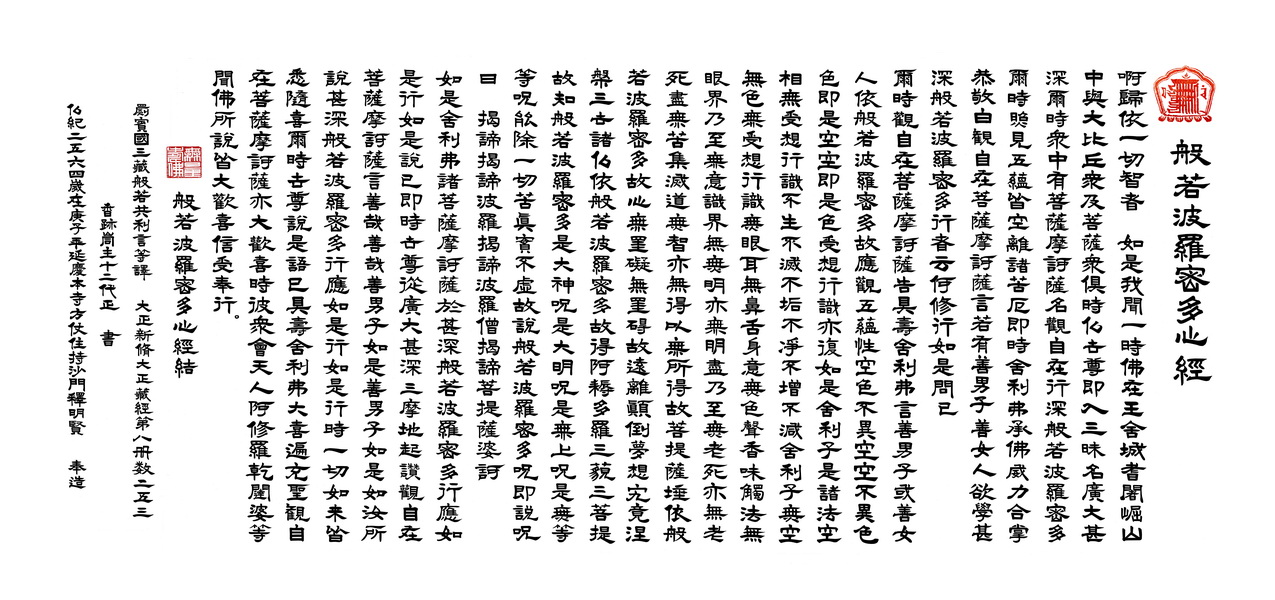 般若波羅密多心經
啊歸依一切智者　如是我聞一時佛在王舍城耆闍崛山
中與大比丘衆及菩薩衆俱時仏世尊即入三昧名廣大甚
深爾時衆中有菩薩摩訶薩名觀自在行深般若波羅密多
爾時照見五蘊皆空離諸苦厄即時舍利弗承佛威力合掌
恭敬白觀自在菩薩摩訶薩言若有善男子善女人欲學甚
深般若波羅密多行者云何修行如是問已
爾時觀自在菩薩摩訶薩告具壽舍利弗言善男子或善女
人依般若波羅密多故應觀五蘊性空色不異空空不異色
色即是空空即是色受想行識亦復如是舍利子是諸法空
相無受想行識不生不滅不垢不凈不增不減舍利子無空
無色無受想行識無眼耳無鼻舌身意無色聲香味觸法無
眼界乃至無意識界無無明亦無明盡乃至無老死亦無老
死盡無苦集滅道無智亦無得以無所得故菩提薩埵依般
若波羅密多故心無罣礙無罣碍故遠離顛倒夢想究竟涅
槃三世諸仏依般若波羅密多故得阿耨多羅三藐三菩提
故知般若波羅密多是大神呪是大明呪是無上呪是無等
等呪能除一切苦真實不虛故說般若波羅密多呪即說呪
曰　揭諦揭諦波羅揭諦波羅僧揭諦菩提薩婆訶
如是舍利弗諸菩薩摩訶薩於甚深般若波羅密多行應如
是行如是說已即時世尊從廣大甚深三摩地起讚觀自在
菩薩摩訶薩言善哉善哉善男子如是善男子如是如汝所
說甚深般若波羅密多行應如是行如是行時一切如来皆
悉隨喜爾時世尊說是語已具壽舍利弗大喜遍充聖觀自
在菩薩摩訶薩亦大歡喜時彼衆會天人阿修羅乾闥婆等
聞佛所說皆大歡喜信受奉行。
般若波羅密多心經結
罽賓國三藏般若共利言等譯　大正新脩大正藏經第八册数二五三
香跡嵩主十二代正　書
仏紀二五六四歲在庚子年延慶本寺方伏住持沙門釋明賢　奉造